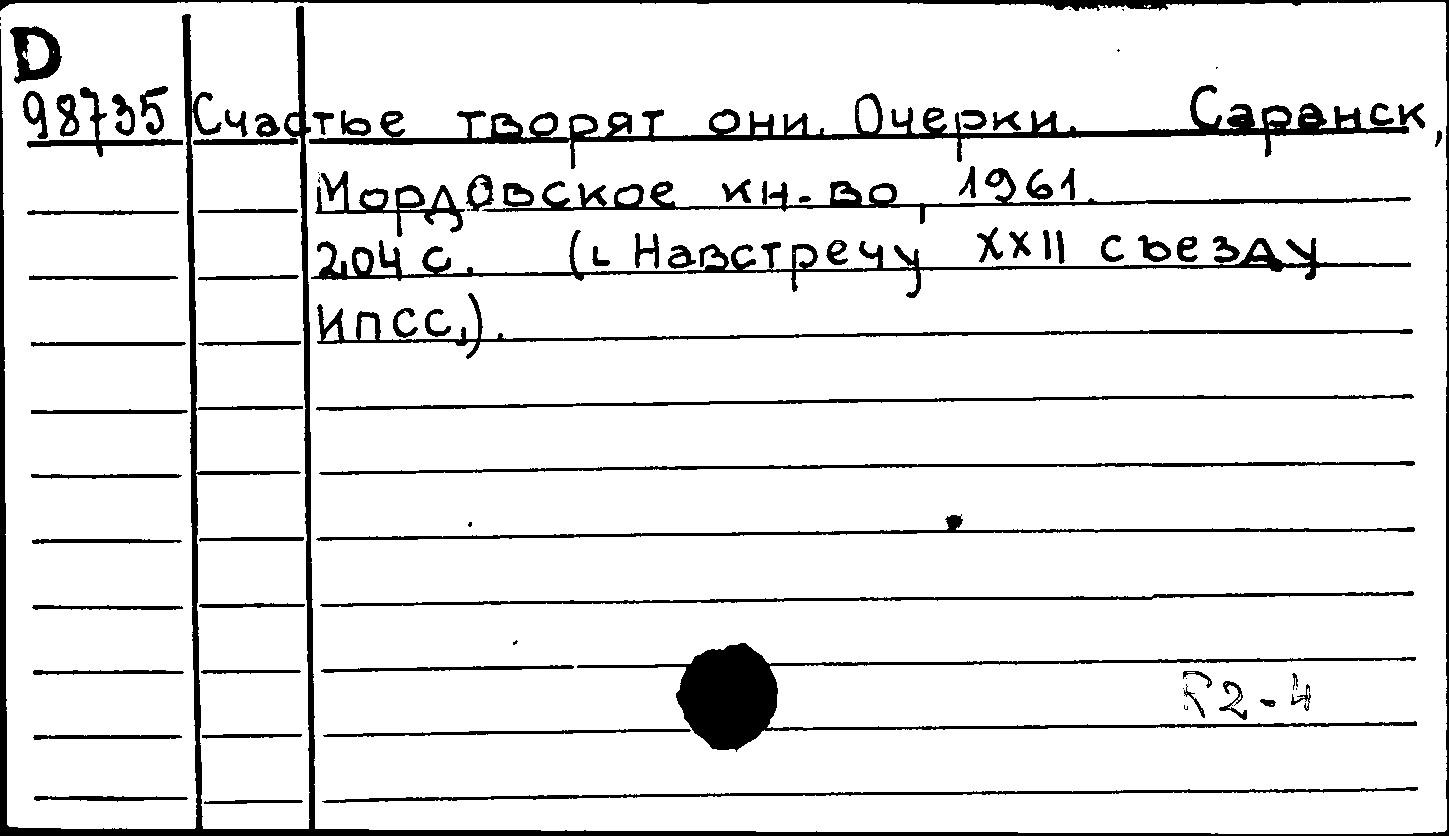 D
98735 Счастье творят они. Очерки. Саранск,
Мордовское кн-во, 1961.
204 с. (Навстречу XXII съезду
КПСС,).
R2-4